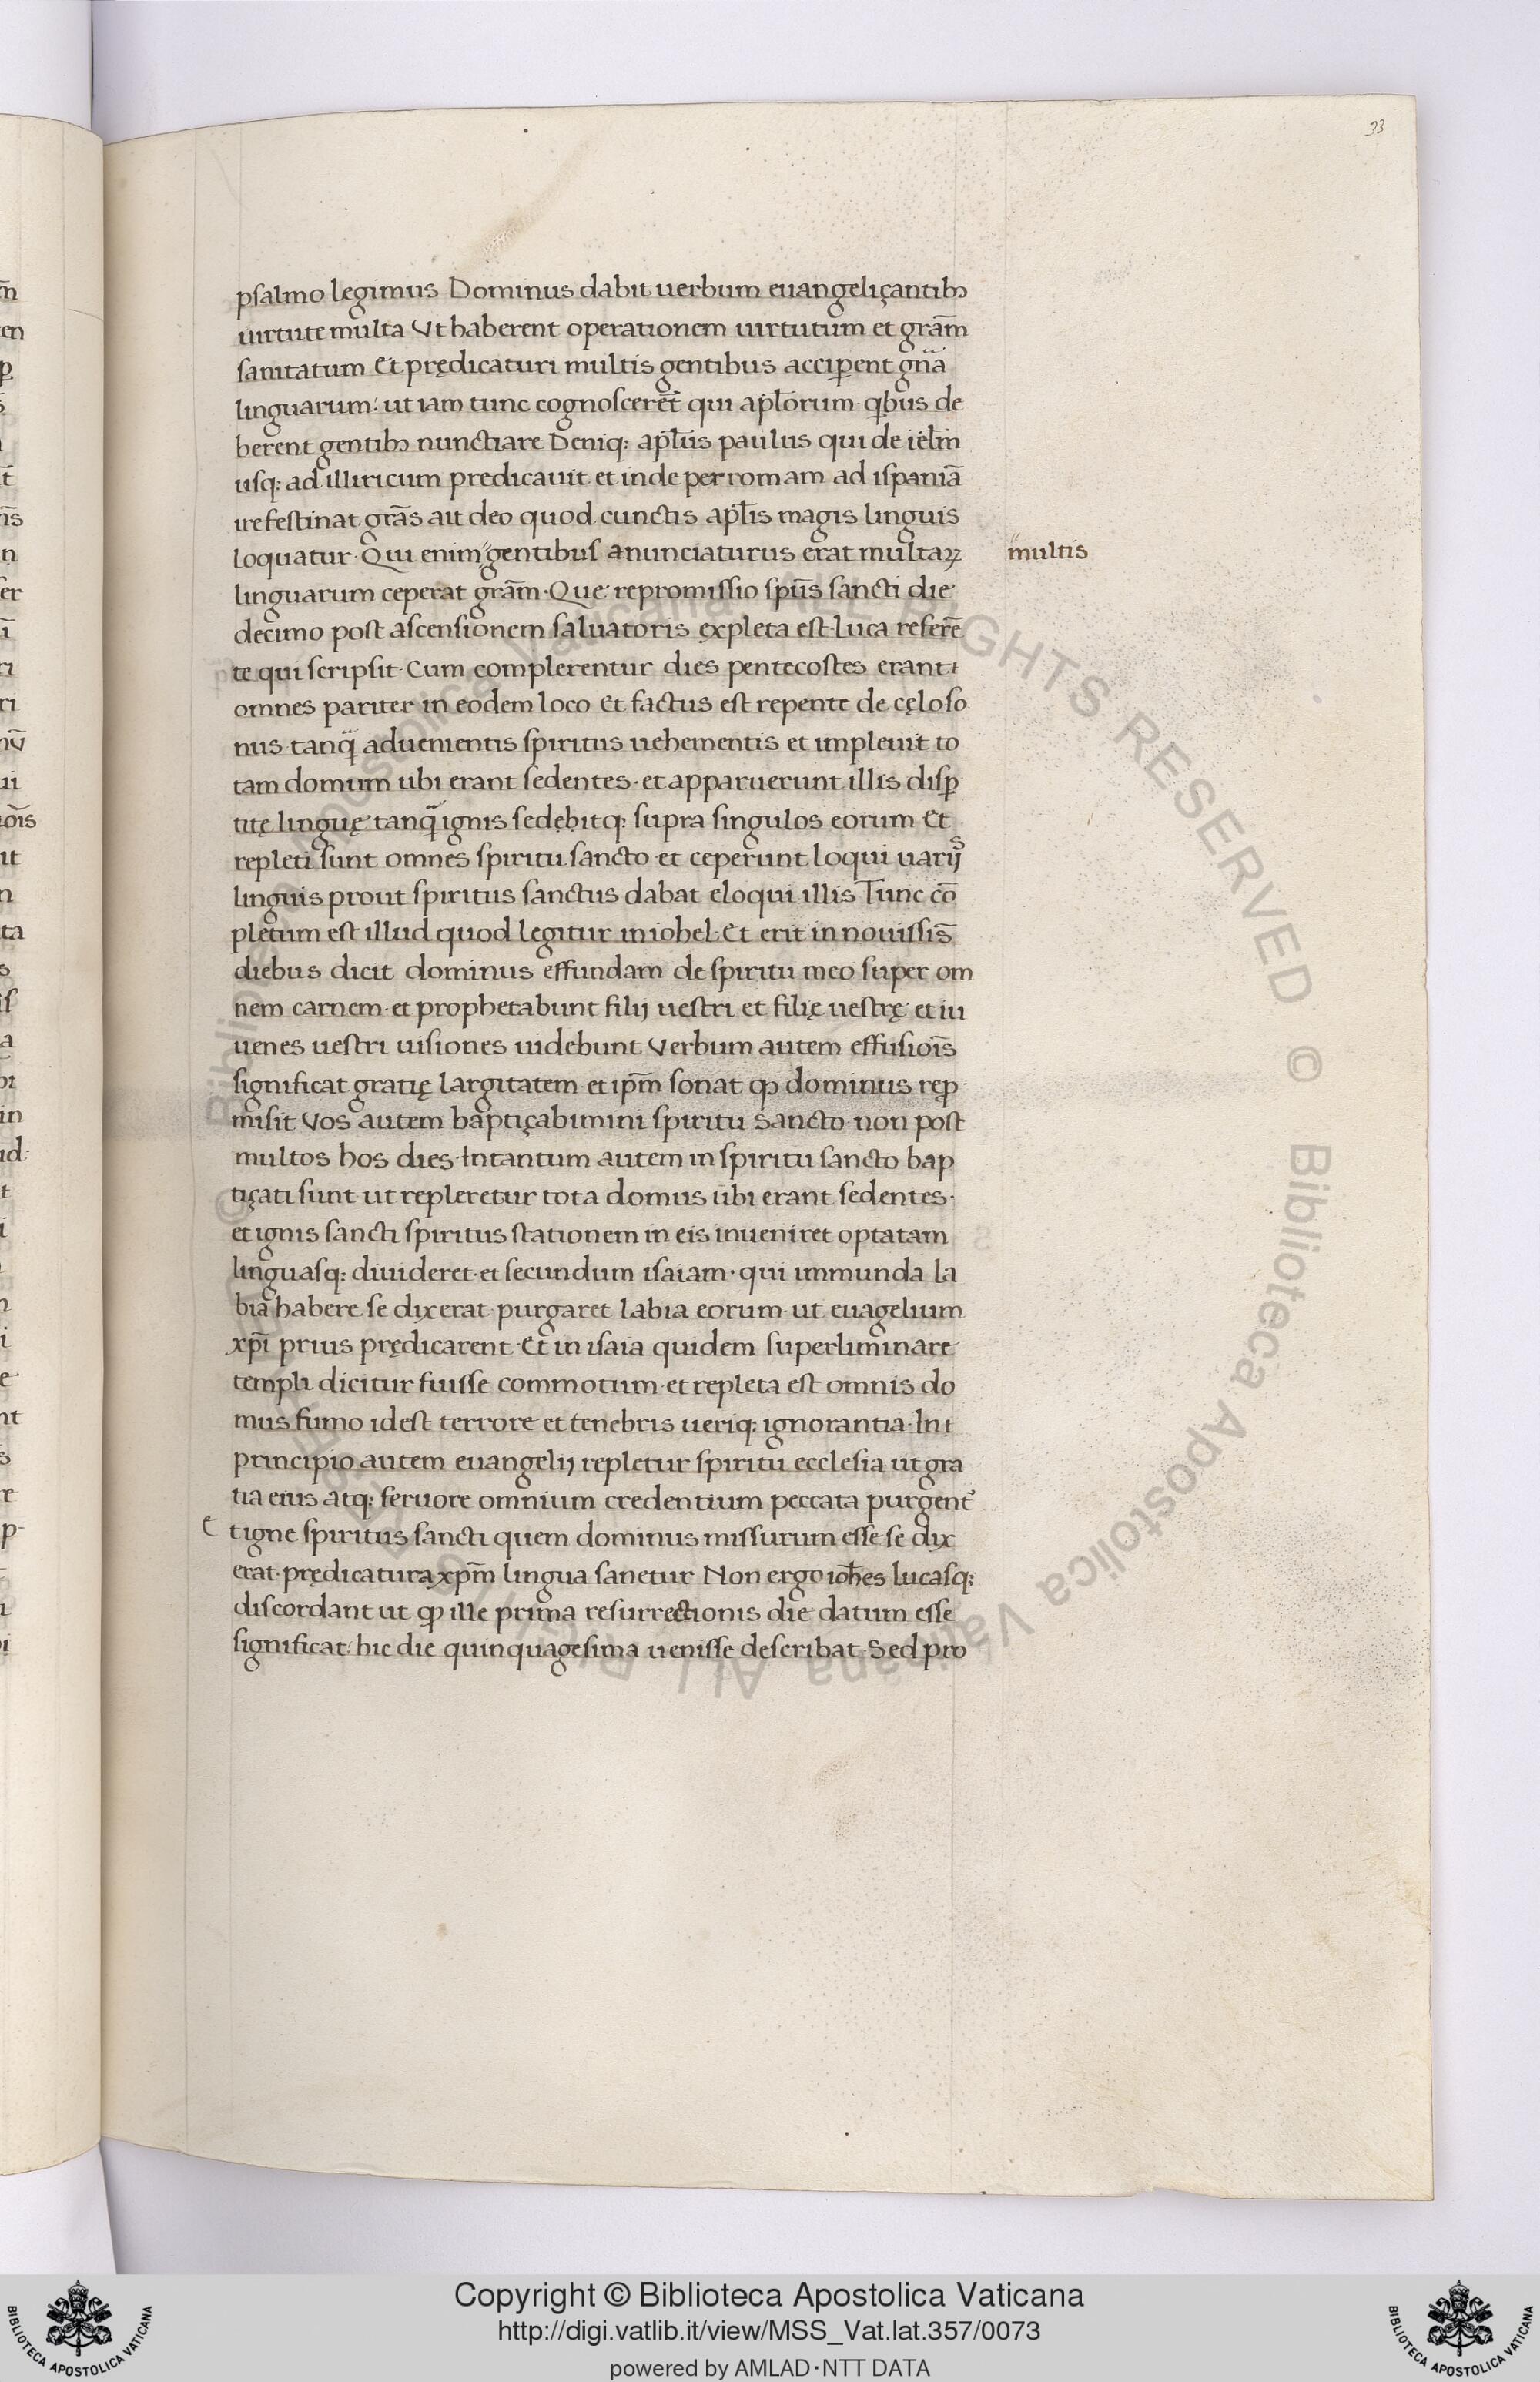 33
psalmo legimus Dominus dabit uerbum euangeliçantibꝫ
uirtute multa Vt haberent operationem uirtutum et grãm
sanitatum Et prędicaturi multis gentibus acciꝑent gña
linguarum: ut iam tunc cognosceret̃ qui apl̃orum q̇bus de
berent gentibꝫ nunctiare Deniq: apl̃us paulus qui de iel̃m
usq: ad illiricum predicauit et inde per romam ad ispaniã
ire festinat grãs ait deo quod cunctis apl̃is magis linguis
loquatur· Qui enim"gentibus anunciaturus erat multaꝝ
"multis
linguarum ceperat grãm· Que repromissio sp̃us sancti die
decimo post ascensionem saluatoris expleta est· Luca referẽ
te qui scripsit· Cum complerentur dies pentecostes erant
omnes pariter in eodem loco Et factus est repente de cęlo so
nus tanq̃ aduenientis spiritus uehementis et impleuit to
tam domum ubi erant sedentes· et apparuerunt illis disꝑ
titę linguę tanq̃ ignis sedebitq: supra singulos eorum Et
repleti sunt omnes spiritu sancto et ceperunt loqui uarijˢ
linguis prout spiritus sanctus dabat eloqui illis Tunc cõ
pletum est illud quod legitur in iohel· Et erit in nouissis̃
diebus dicit dominus effundam de spiritu meo super om
nem carnem· et prophetabunt filij uestri et filię uestrę et iu
uenes uestri uisiones uidebunt Verbum autem effusiõis
significat gratię largitatem et ip̃m sonat qꝫ dominus reꝓ
misit Vos autem baptiçabimini spiritu Sancto non post
multos hos dies· Intantum autem in spiritu sancto bap
tiçati sunt ut repleretur tota domus ubi erant sedentes·
et ignis sancti spiritus stationem in eis inueniret optatam
linguasq: diuideret· et secundum isaiam· qui immunda la
bia habere se dixerat· purgaret labia eorum ut euagelium
xp̃i prius prędicarent· Et in isaia quidem superliminare
templi dicitur fuisse commotum· et repleta est omnis do
mus fumo idest terrore et tenebris ueriq: ignorantia· In
principio autem euangelij repletur spiritu ecclesia ut gra
tia eius atq: feruore omnium credentium peccata purgent᷑
e tigne spiritus sancti quem dominus missurum esse se dix
erat· prędicatura xp̃m lingua sanetur Non ergo ioh̃es lucasq:
discordant ut qꝫ ille prima resurrectionis die datum esse
significat· hic die quinquagesima uenisse describat· Sed pro
m̃
en
ꝑ
er
ri
ui
iõis
ut
ta
in
id·
nt
© Biblioteca Apostolica Vaticana ALL RIGHTS RESERVED © Biblioteca Apostolica Vaticana ALL RIGHTS RESERVED
Copyright © Biblioteca Apostolica Vaticana
http://digi.vatlib.it/view/MSS_Vat.lat.357/0073
powered by AMLAD·NTT DATA
BIBLIOTECA APOSTOLICA VATICANA
BIBLIOTECA APOSTOLICA VATICANA